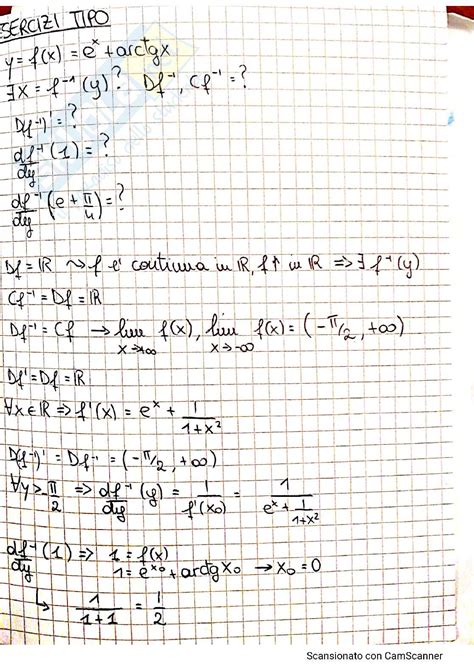 ESERCIZI TIPO
y = f(x) = eˣ + arctgx
∃x = f⁻¹(y)? Df⁻¹, Cf⁻¹ = ?
D(f⁻¹)' = ?
df⁻¹/dy (1) = ?
df⁻¹/dy (e + π/4) = ?
Df = ℝ ⤳ f e' continua in ℝ, f↑ in ℝ ⇒ ∃ f⁻¹(y)
Cf⁻¹ = Df = ℝ
Df⁻¹ = Cf → lim x→+∞ f(x), lim x→-∞ f(x) = (-π/2, +∞)
Df' = Df = ℝ
∀x∈ℝ ⇒ f'(x) = eˣ + 1/(1+x²)
D(f⁻¹)' = Df⁻¹ = (-π/2, +∞)
∀y > -π/2 ⇒ df⁻¹/dy (y) = 1/f'(x₀) = 1/(eˣ + 1/(1+x²))
df⁻¹/dy (1) ⇒ 1 = f(x)
1 = eˣ⁰ + arctgx₀ → x₀ = 0
↳ 1/(1+1) = 1/2
Scansionato con CamScanner